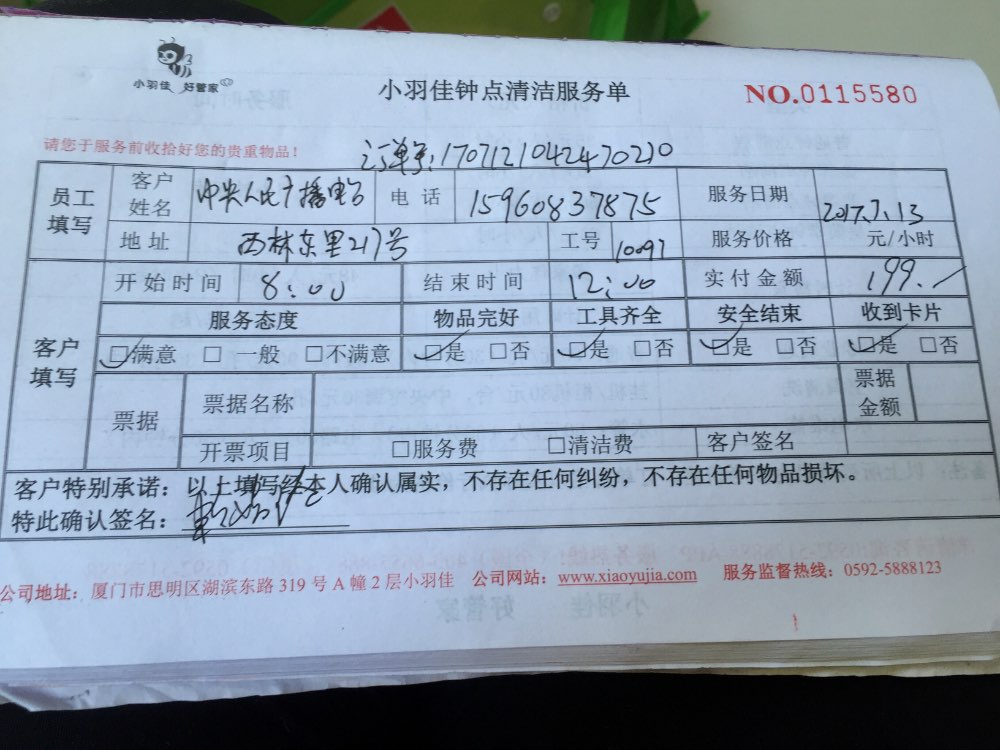 小羽佳 好管家
小羽佳钟点清洁服务单
NO.0115580
请您于服务前收拾好您的贵重物品！
订单号:1707121042470210
员工填写 客户姓名 中央人民广播电台 电话 15960837875 服务日期 2017.7.13
地址 西林东里217号 工号 10097 服务价格 元/小时
客户填写 开始时间 8:00 结束时间 12:00 实付金额 199.
服务态度 物品完好 工具齐全 安全结束 收到卡片
☑满意 □一般 □不满意 ☑是 □否 ☑是 □否 ☑是 □否 ☑是 □否
票据 票据名称 票据金额
开票项目 □服务费 □清洁费 客户签名
客户特别承诺：以上填写经本人确认属实，不存在任何纠纷，不存在任何物品损坏。
特此确认签名：
公司地址：厦门市思明区湖滨东路 319 号 A 幢 2 层小羽佳 公司网站：www.xiaoyujia.com 服务监督热线：0592-5888123